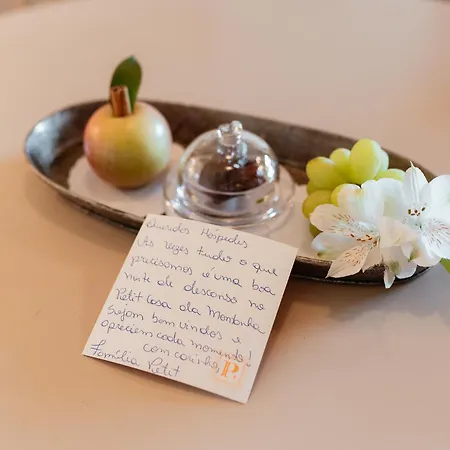 Queridos Hóspedes
Às vezes tudo o que
precisamos é uma boa
noite de descanso no
Petit Casa da Montanha
Sejam bem vindos e
apreciem cada momento!
Com carinho,
Família Petit
P.